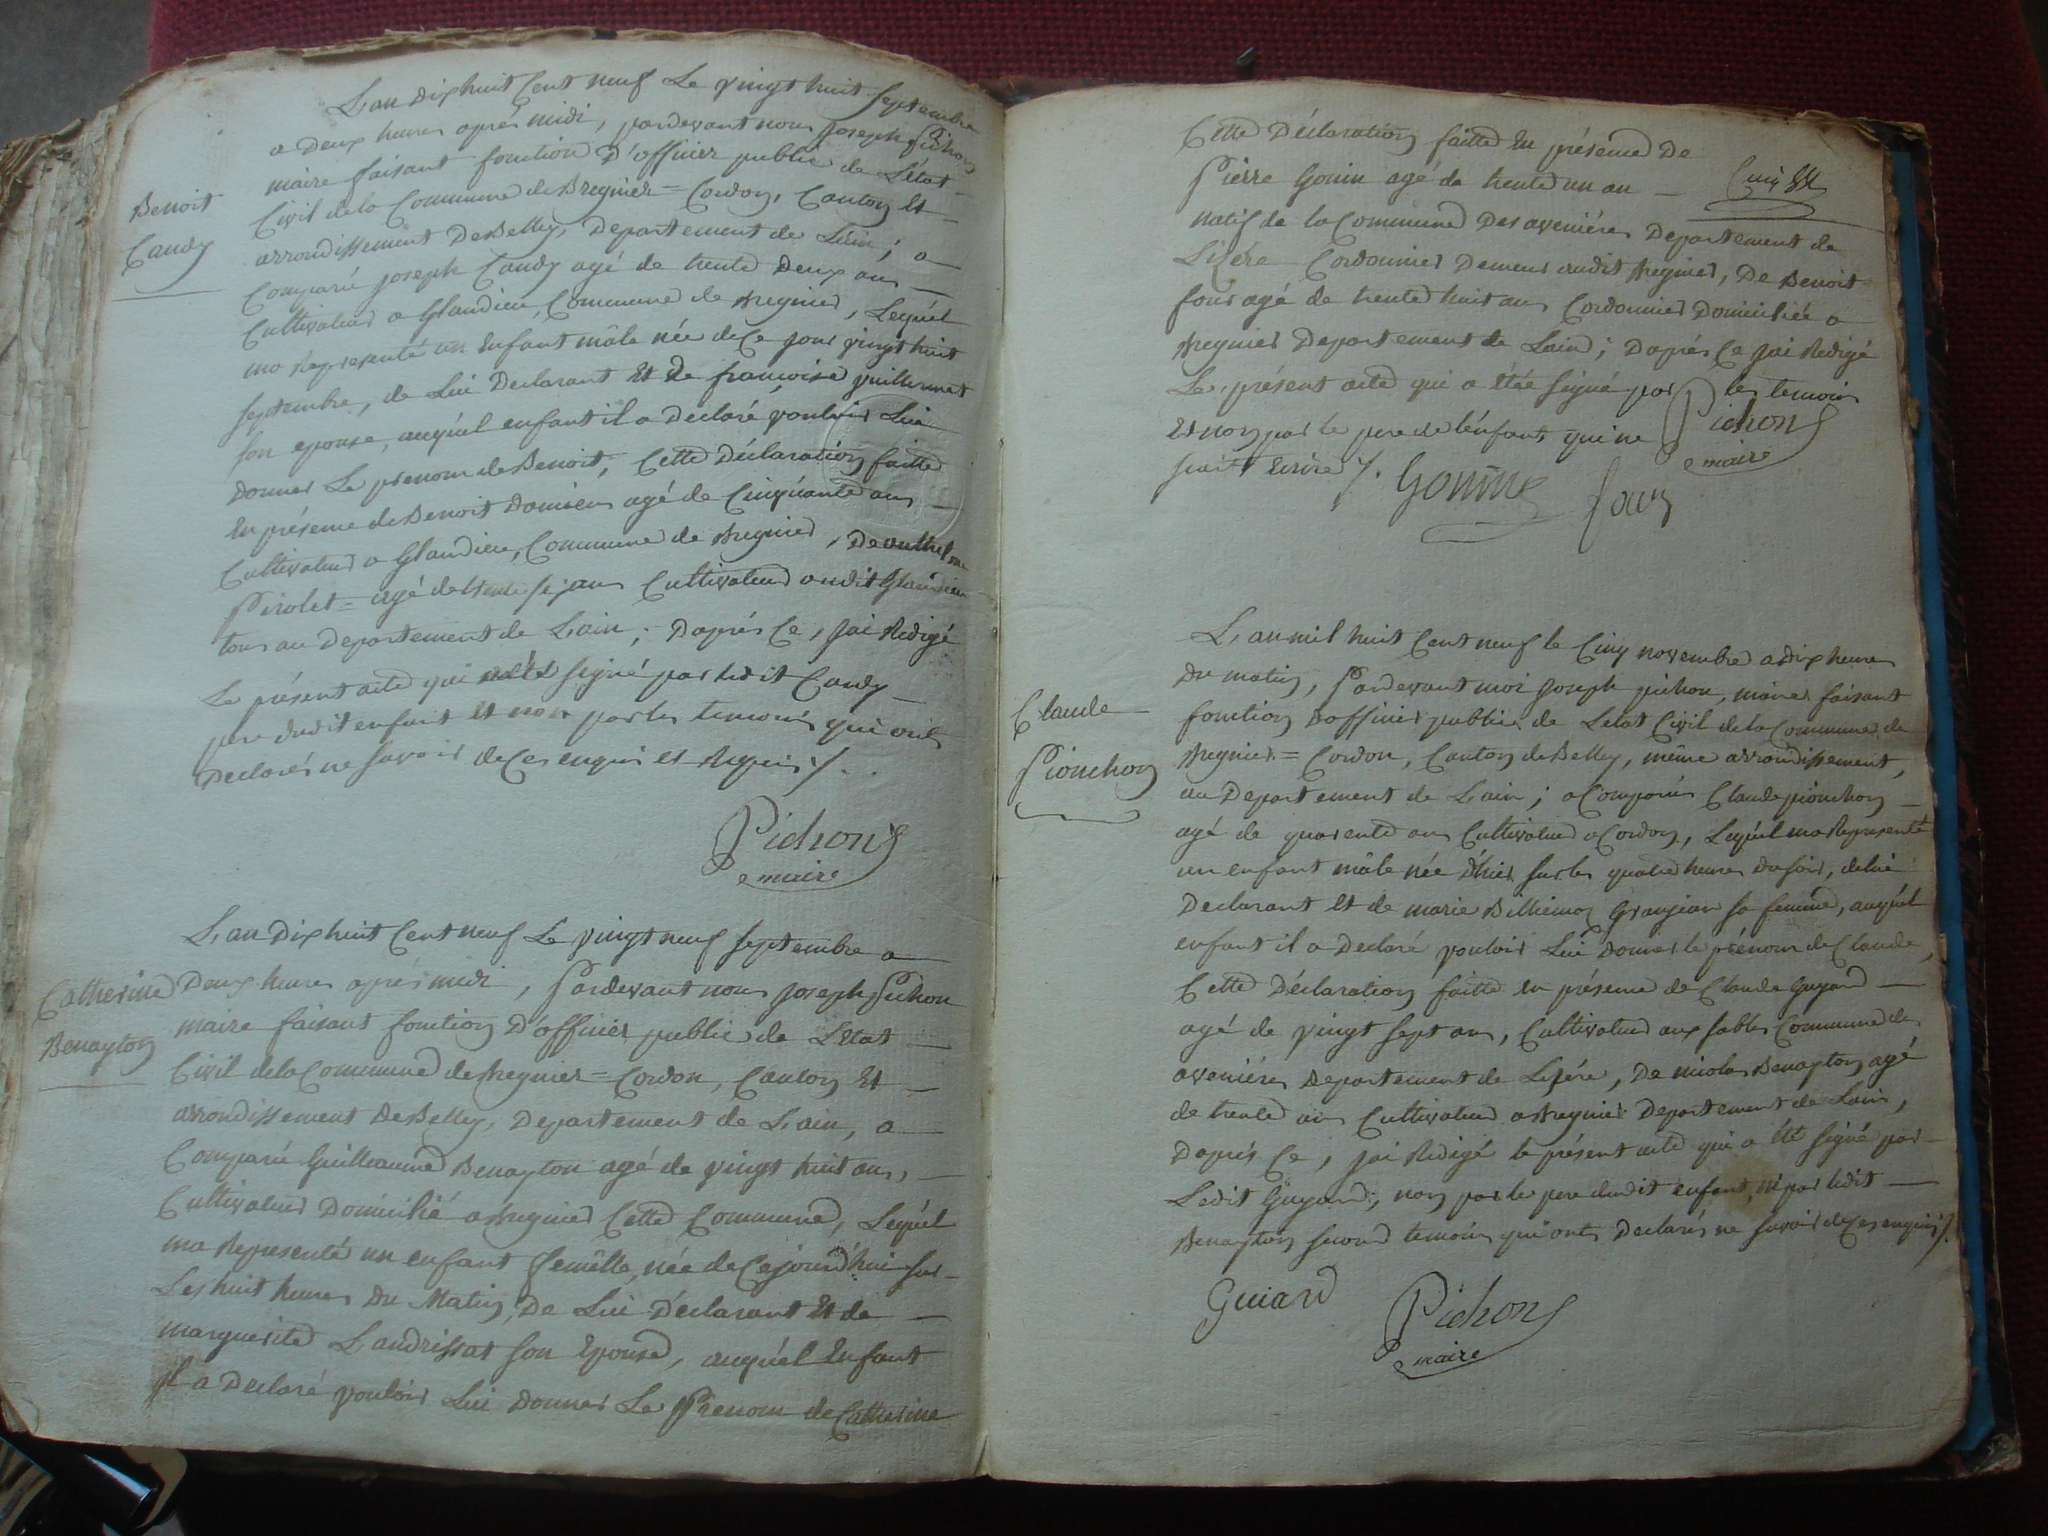 L'an dix huit Cent neuf Le vingt huit septembre
a Deux heures aprés midi, pardevant nous Joseph Pichon
maire faisant fonction D'officier public de L'état
Benoit
Candy
Civil de la Commune de Bregnier = Cordon, Canton Et
arrondissement De Belley, Departement de L'ain, a
Comparu Joseph Candy agé de trente Deux ans
Cultivateur a Glandieu, Commune de Bregnier, Lequél
ma Representé un Enfant mâle née de Ce jour vingt huit
septembre, de Lui Declarant Et De francoise guillermet
son epouse, auquél enfant il a Declaré vouloir Lui
Donner Le prenom de Benoit, Cette Déclaration faitte
En présence de Benoit Damien agé de Cinquante ans
Cultivateur a Glandieu, Commune de Bregnier, De
Pirolet = agé de trente six ans Cultivateur audit Glandieu
tous au Departement de L'ain; Daprés Ce, Jai Redigé
Le présent acte qui a été signé par ledit Candy
pere dudit enfant Et non par les temoins qui ont
Declarés ne savoir de Ces enquis et Requis /.
Pichon
maire
L'an Dix huit Cent neuf Le vingt neuf septembre a
Catherine
Benayton
Deux heures aprés midi, Pardevant nous Joseph Pichon
maire faisant fonction D'officier public de L'Etat
Civil de la Commune de Bregnier = Cordon, Canton Et
arrondissement De Belley, Departement de L'ain, a
Comparu Guilleaume Benayton agé de vingt huit ans,
Cultivateur Domicilié a Bregnier Cette Commune, Lequél
ma Representé un enfant femelle, née de Cejourd'hui sur
Les huit heures Du Matin, De Lui Déclarant Et de
marguerite Landrissat son Epouse, auquél Enfant
il a Declaré vouloir Lui Donner Le Prenom de Catherine
Cette Déclaration faitte En présence De
Pierre Gonin agé de trente un an
natif de la Commune Des avenières Departement de
L'isére Cordonnier Demeurant audit Bregnier, De Benoit
four agé de trente huit ans Cordonnier Domiciliée a
Bregnier Departement de Lain; Daprés Ce Jai Redigé
Le présent acte qui a étée signé par les temoins
Et non par le pere de l'énfant, qui ne
sait Ecrire /.
Pichon
maire
Gonin
L'an mil huit Cent neuf le Cinq novembre a dix heures
Du matin, Pardevant moi Joseph pichon, maire faisant
Claude
Pionchon
fonction D'officier public de L'état Civil de la Commune de
Bregnier = Cordon, Canton de Belley, même arrondissement,
au Departement de L'ain; a Comparu Claude pionchon
agé de quarente ans Cultivateur a Cordon, Lequél ma Representé
un enfant mâle née D'hier sur les quatre heures Du soir, de lui
Declarant Et de marie Granjean sa femme, auquél
enfant il a Declaré vouloir Lui Donner le prénom de Claude,
Cette Déclaration faitte En présence de Claude Guyard
agé de vingt sept ans, Cultivateur aux sables Commune des
avenières Departement de L'isére, De nicolas Benayton agé
de trente ans Cultivateur a Bregnier Departement de Lain,
Daprés Ce, Jai Redigé le présent acte qui a été signé par
Ledit Guyard, non par le pere dudit enfant, ni par ledit
Benayton second temoin qui ont Declarés ne savoir de Ces enquis /.
Guiard
Pichon
maire